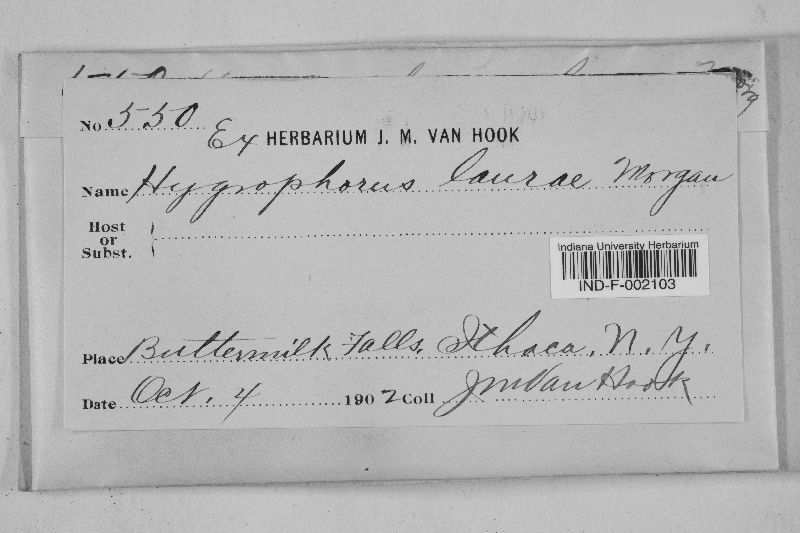 No 550
Ex HERBARIUM J. M. VAN HOOK
Name Hygrophorus laurae Morgan
Host
or
Subst.
Indiana University Herbarium
IND-F-002103
Place Buttermilk Falls, Ithaca, N. Y.
Date Oct. 4 1902 Coll J M Van Hook